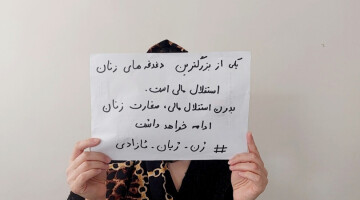 یکی از بزرگترین دغدغه های زنان
استقلال مالی است.
بدون استقلال مالی، اسارت زنان
ادامه خواهد داشت
# ژن - ژیان - ئازادی